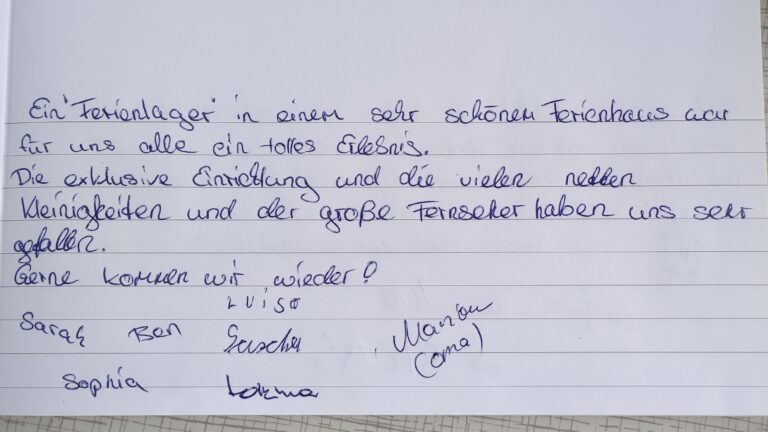 Ein "Ferienlager" in einem sehr schönem Ferienhaus war
für uns alle ein tolles Erlebnis.
Die exklusive Einrichtung und die vielen netten
Kleinigkeiten und der große Fernseher haben uns sehr
gefallen.
Gerne kommen wir wieder!
Luisa
Sarah Ben Sascha Marion
(Oma)
Sophia